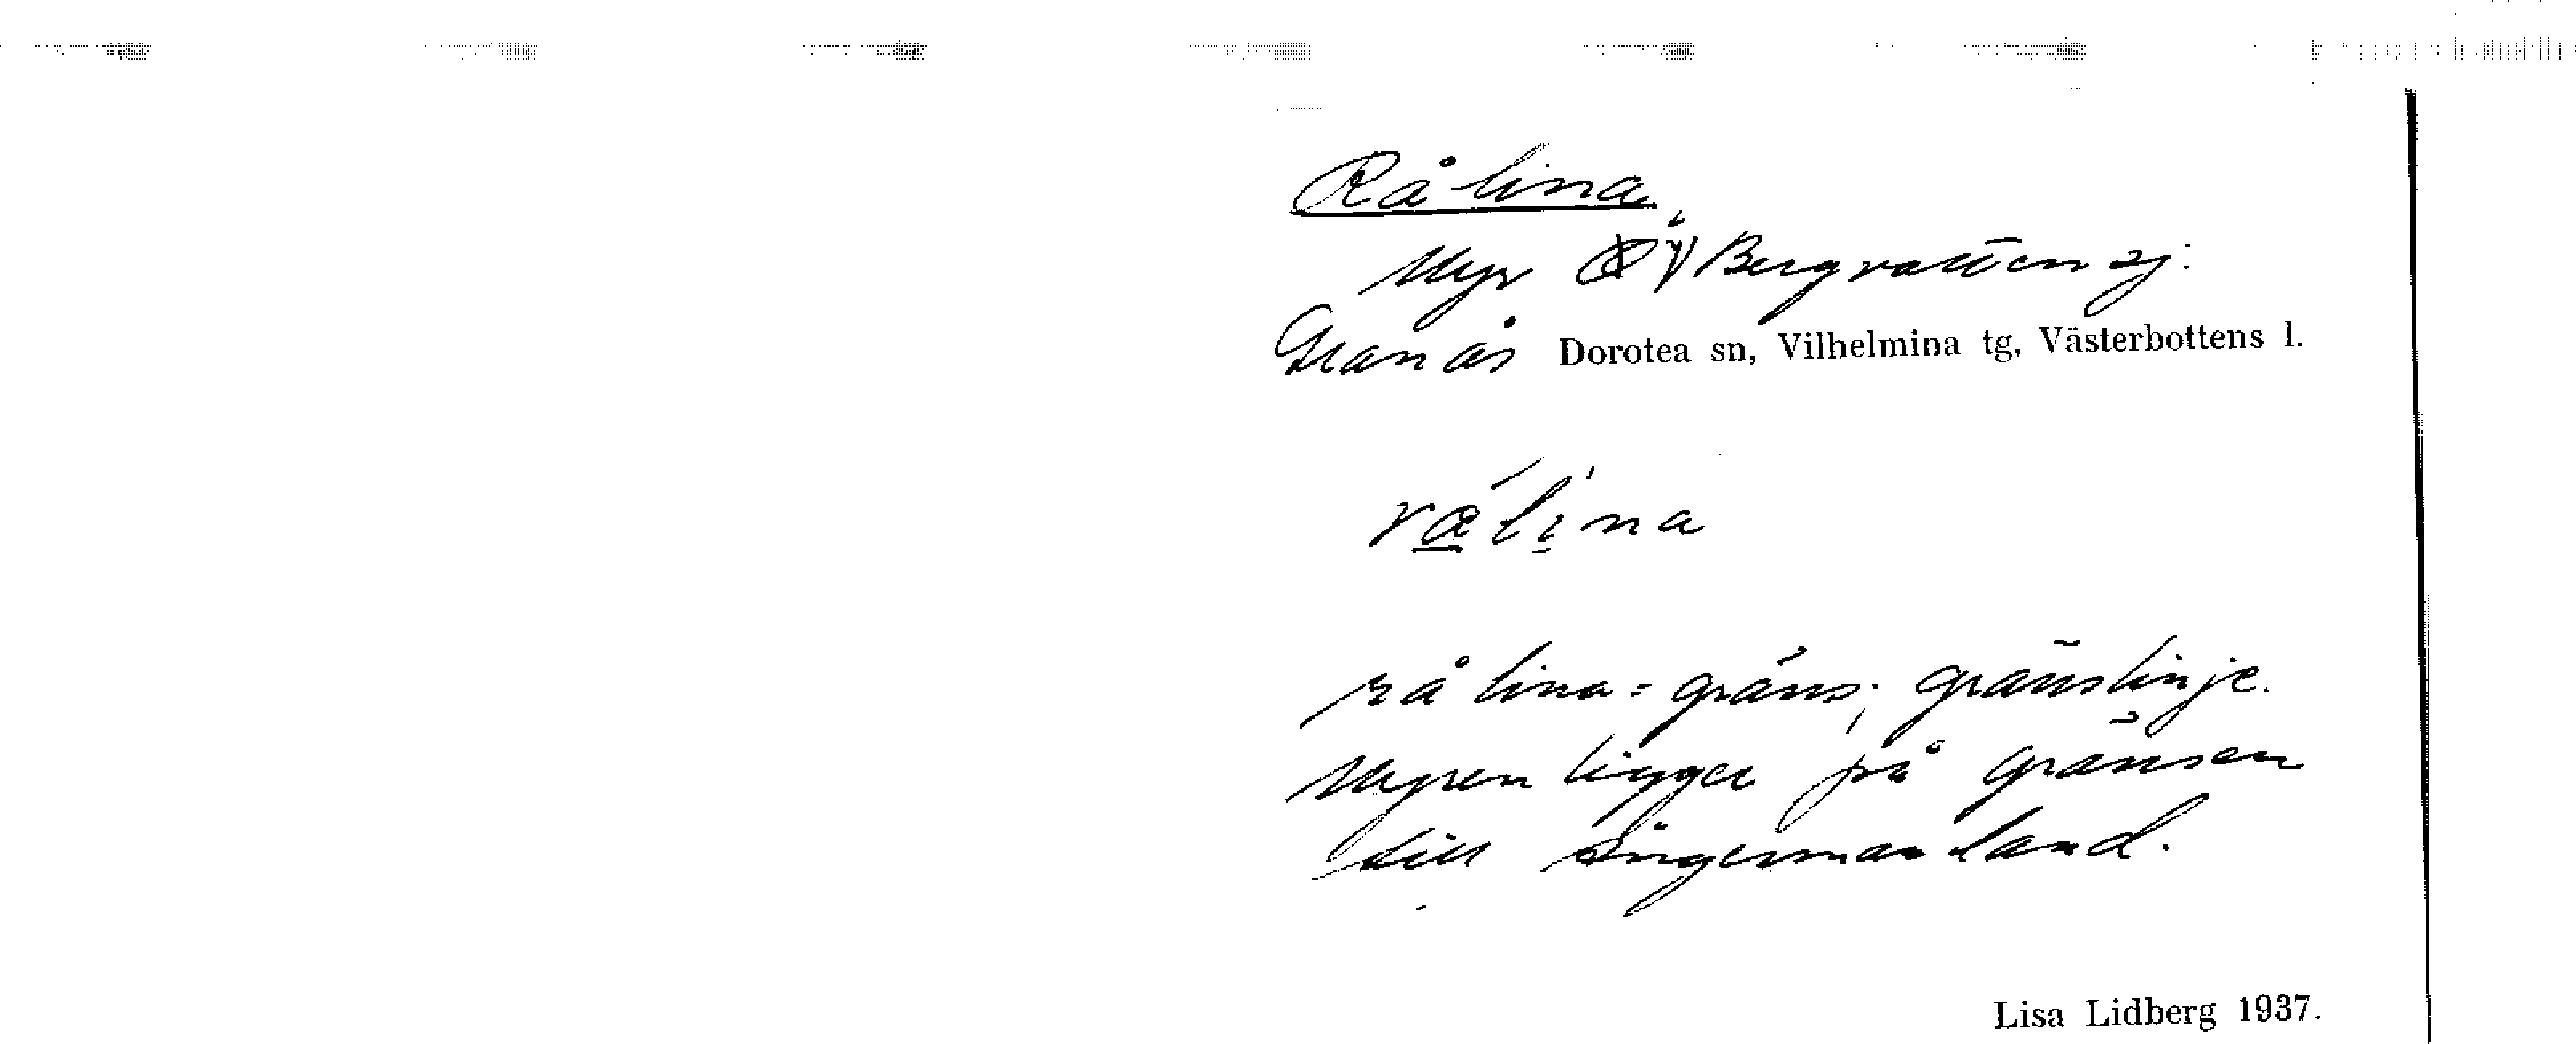 Rålina,
Myr V Bergvattensj:
Granås Dorotea sn, Vilhelmina tg, Västerbottens l.
rålina = gräns; gränslinje.
Myren ligger på gränsen
till Ångermanland.
Lisa Lidberg 1937.